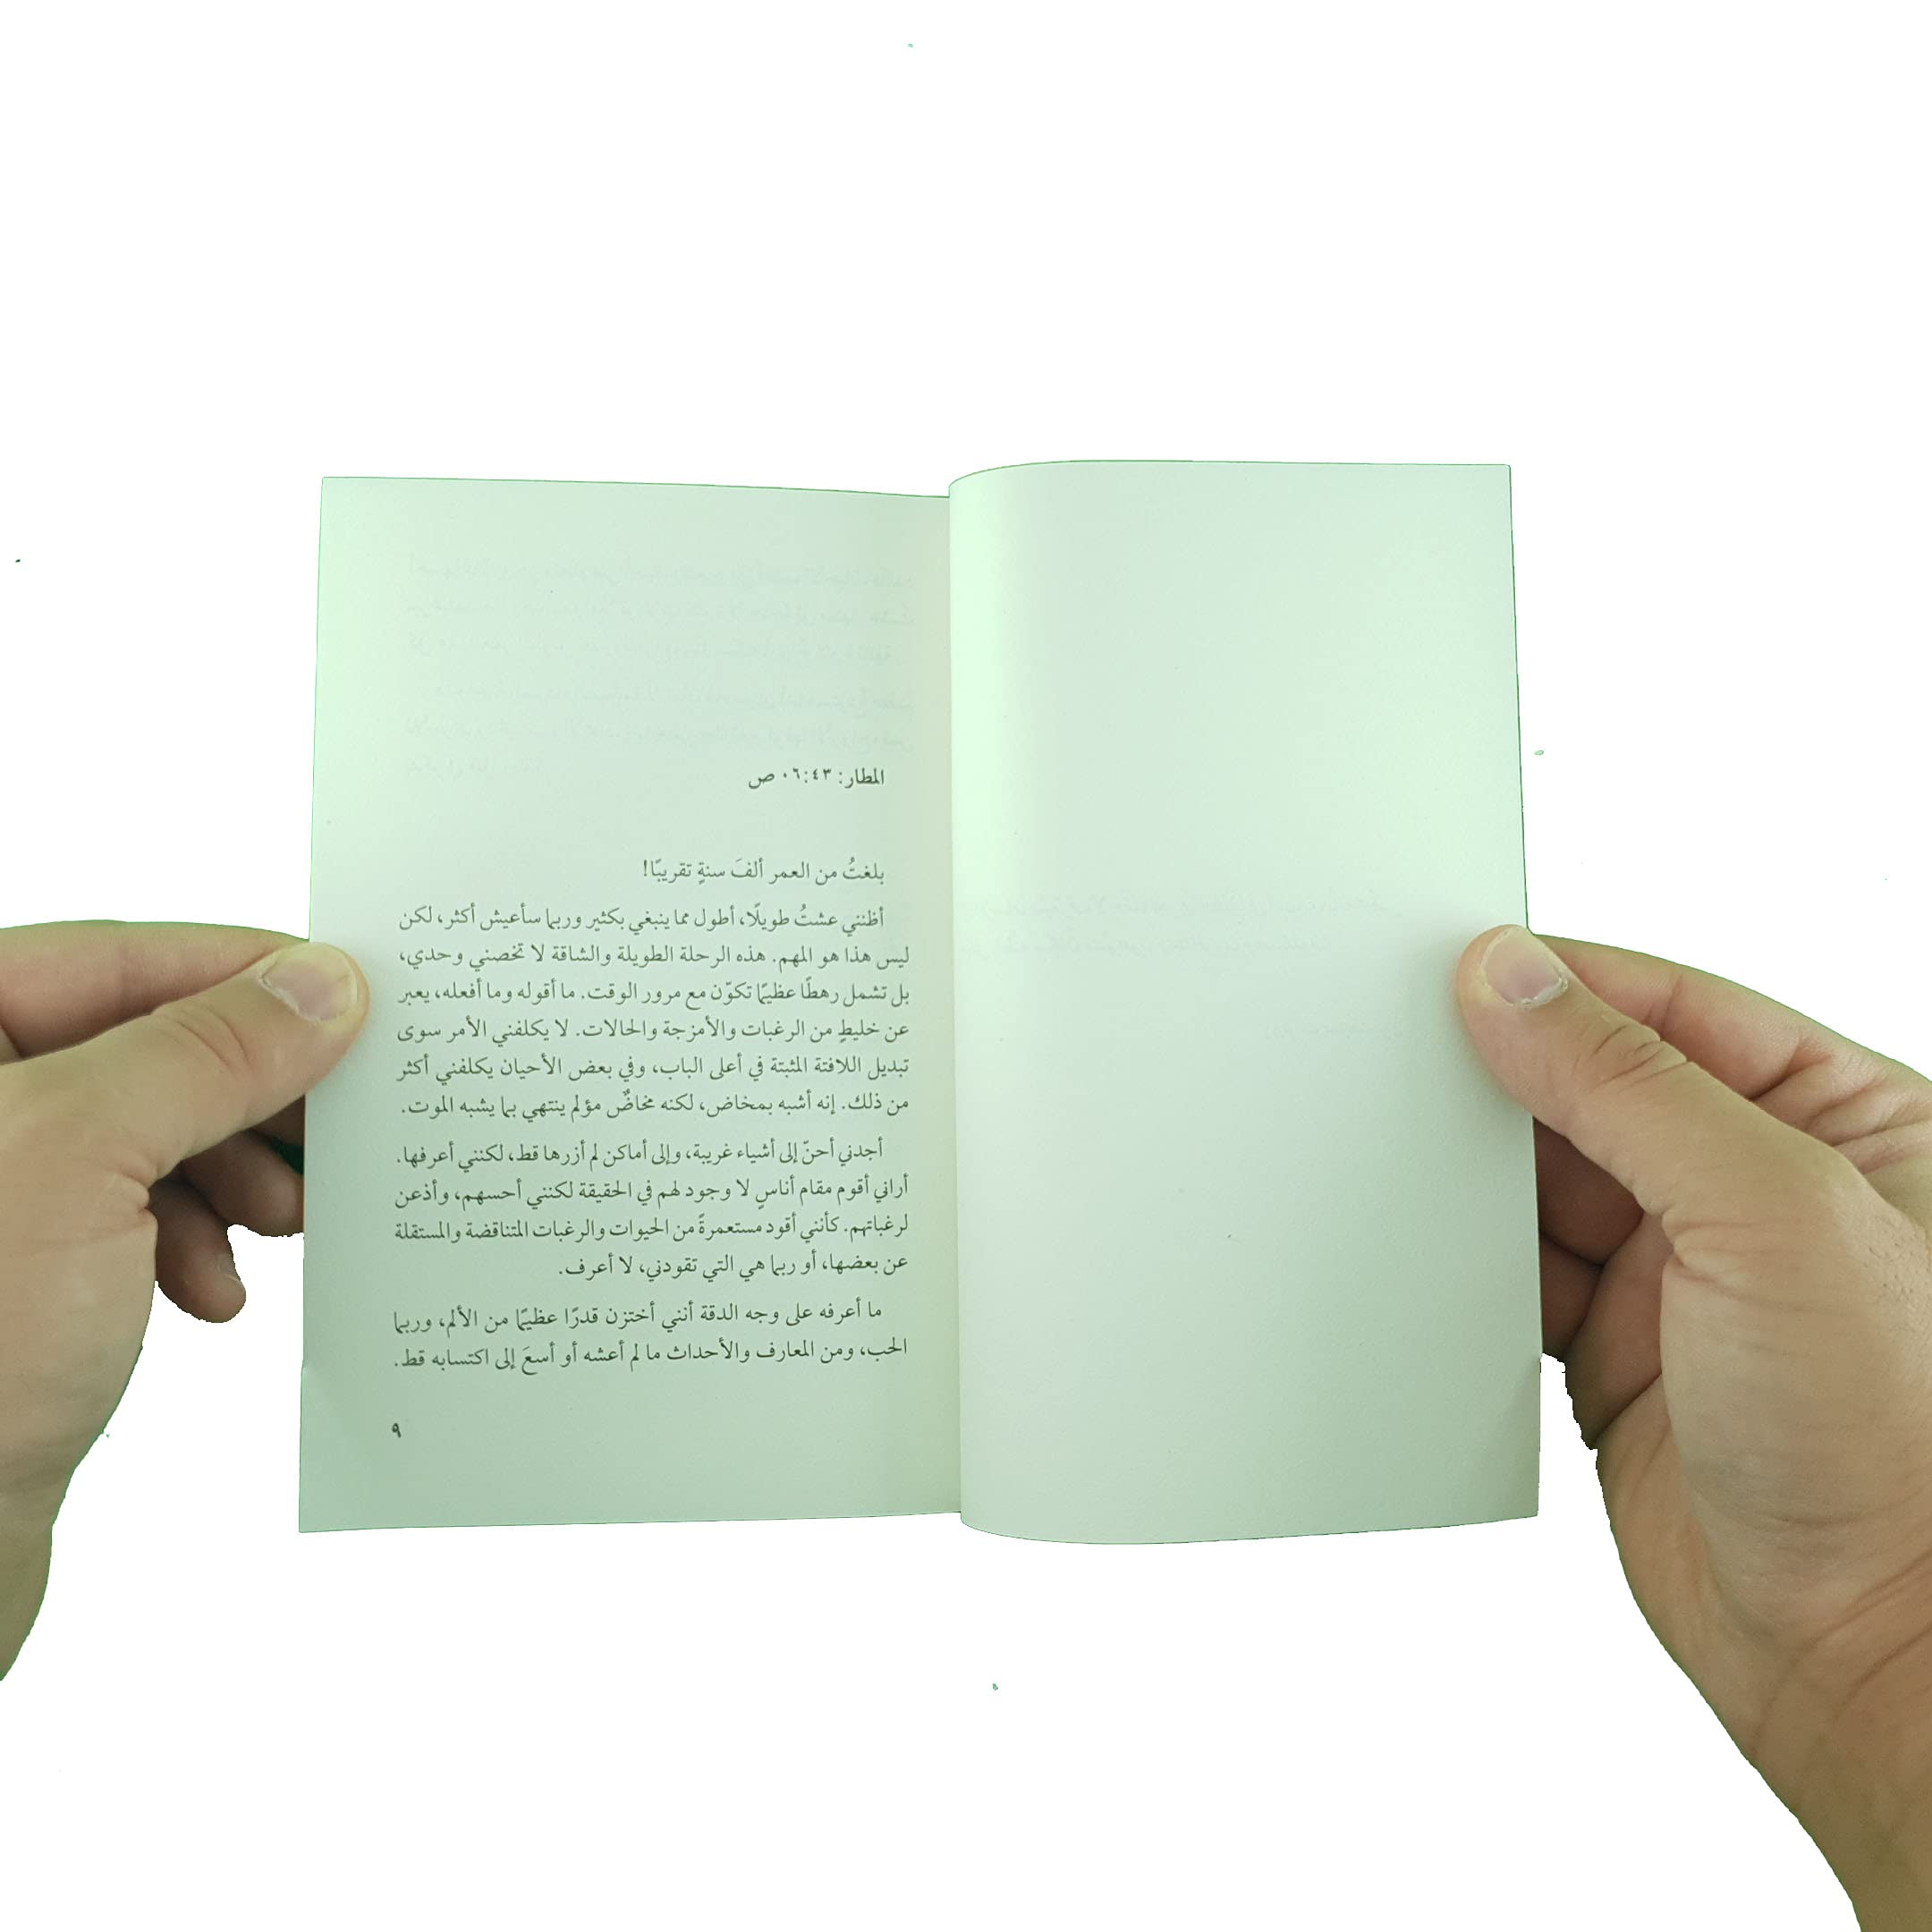 المطار: ٠٦:٤٣ ص
بلغتُ من العمر ألفَ سنةٍ تقريبًا!
أظنني عشتُ طويلًا، أطول مما ينبغي بكثير وربما سأعيش أكثر، لكن
ليس هذا هو المهم. هذه الرحلة الطويلة والشاقة لا تخصني وحدي،
بل تشمل رهطًا عظيمًا تكوّن مع مرور الوقت. ما أقوله وما أفعله، يعبر
عن خليطٍ من الرغبات والأمزجة والحالات. لا يكلفني الأمر سوى
تبديل اللافتة المثبتة في أعلى الباب، وفي بعض الأحيان يكلفني أكثر
من ذلك. إنه أشبه بمخاض، لكنه مخاضٌ مؤلم ينتهي بما يشبه الموت.
أجدني أحنّ إلى أشياء غريبة، وإلى أماكن لم أزرها قط، لكنني أعرفها.
أراني أقوم مقام أناسٍ لا وجود لهم في الحقيقة لكنني أحسهم، وأذعن
لرغباتهم. كأنني أقود مستعمرةً من الحيوات والرغبات المتناقضة والمستقلة
عن بعضها، أو ربما هي التي تقودني، لا أعرف.
ما أعرفه على وجه الدقة أنني أختزن قدرًا عظيمًا من الألم، وربما
الحب، ومن المعارف والأحداث ما لم أعشه أو أسعَ إلى اكتسابه قط.
٩